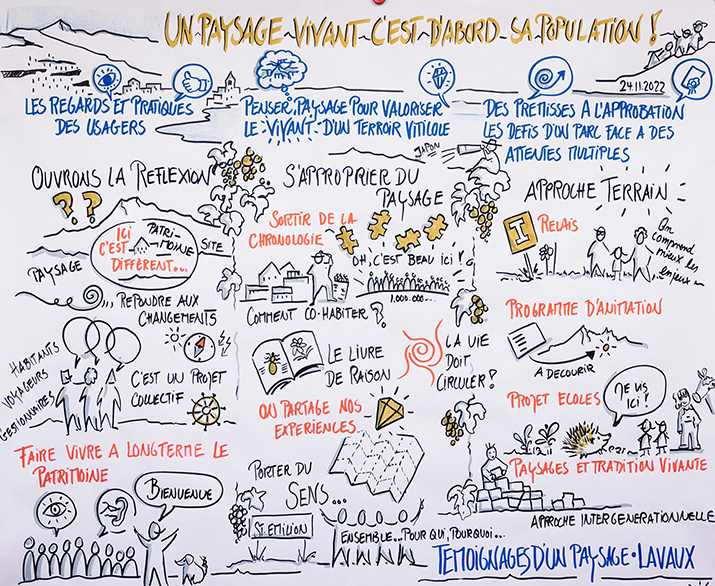 UN PAYSAGE VIVANT C'EST D'ABORD SA POPULATION !
24.11.2022
LES REGARDS ET PRATIQUES
DES USAGERS
OUVRONS LA REFLEXION
??
ICI
C'EST
DIFFÉRENT...
PATRI-
MOINE
SITE
PAYSAGE
REPONDRE AUX
CHANGEMENTS
HABITANTS
VOYAGEURS
GESTIONNAIRES
C'EST UN PROJET
COLLECTIF
FAIRE VIVRE A LONG TERME LE
PATRIMOINE
BIENVENUE
PENSER PAYSAGE POUR VALORISER
LE VIVANT D'UN TERROIR VITICOLE
JAPON
S'APPROPRIER DU
PAYSAGE
SORTIR DE LA
CHRONOLOGIE
OH, C'EST BEAU ICI !
1.000.000...
COMMENT CO-HABITER ?
LE LIVRE
DE RAISON
LA VIE
DOIT
CIRCULER !
ON PARTAGE NOS
EXPERIENCES
PORTER DU
SENS...
ST. EMILION
ENSEMBLE... POUR QUI, POURQUOI...
DES PREMISSES A L'APPROBATION
LES DEFIS D'UN PARC FACE A DES
ATTENTES MULTIPLES
APPROCHE TERRAIN
I
RELAIS
On comprend
mieux les
enjeux
PROGRAMME D'ANIMATION
A DECOURIR
PROJET ECOLES
JE VIS
ICI !
PAYSAGES ET TRADITION VIVANTE
APPROCHE INTERGENERATIONNELLE
TEMOIGNAGES D'UN PAYSAGE • LAVAUX